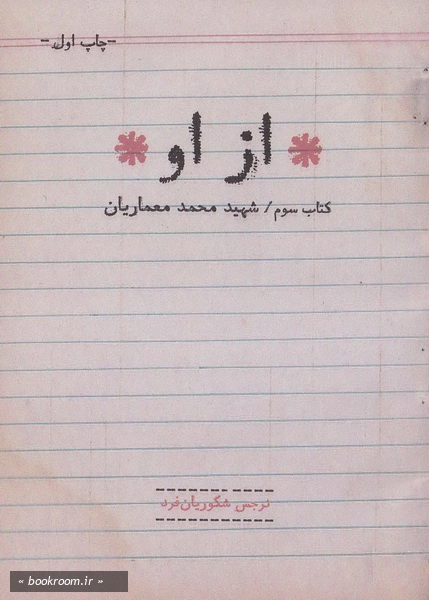 -چاپ اول-
* از او *
کتاب سوم / شهید محمد معماریان
نرجس شکوریان‌فرد
« bookroom.ir »